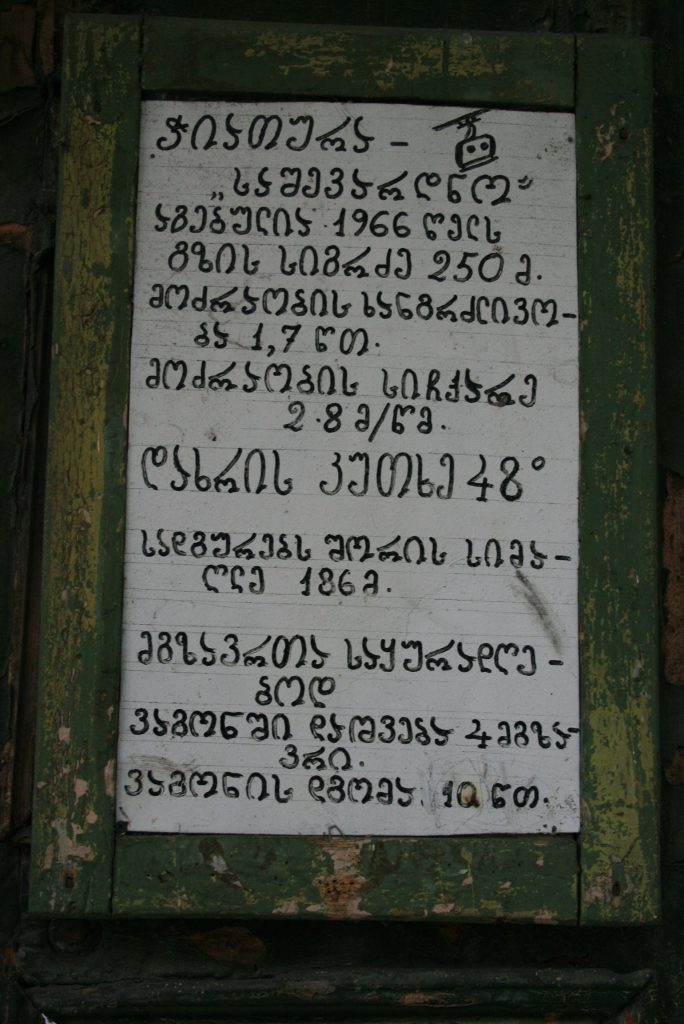 ჭიათურა –
„საშევარდნო“
აგებულია 1966 წელს
გზის სიგრძე 250 მ.
მოძრაობის ხანგრძლივო–
ბა 1,7 წთ.
მოძრაობის სიჩქარე
2.8 მ/წმ.
დახრის კუთხე 48°
სადგურებს შორის სიმა–
ღლე 186 მ.
მგზავრთა საყურადღე–
ბოდ
ვაგონში დაშვება 4 მგზა–
ვრი.
ვაგონის დგომა 10 წთ.